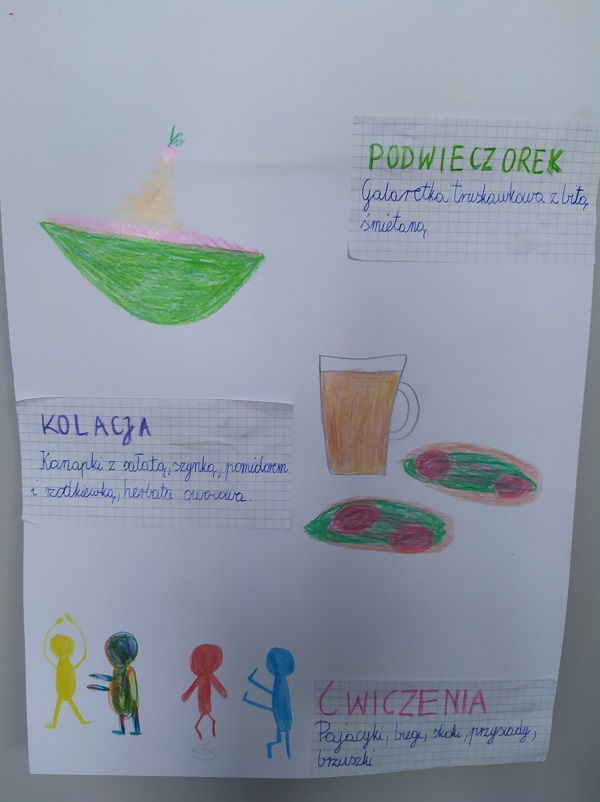 PODWIECZOREK
Galaretka truskawkowa z bitą
śmietaną
KOLACJA
Kanapki z sałatą, szynką, pomidorem
i rzodkiewką, herbata owocowa.
ĆWICZENIA
Pajacyki, biegi, skoki, przysiady,
brzuszki